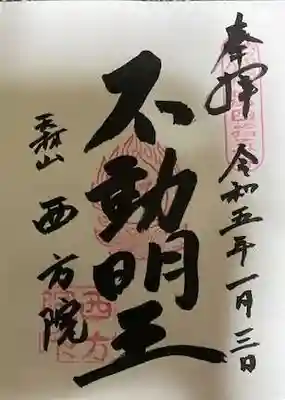 奉拝 令和五年一月三日
不動明王
山 西方院
西方